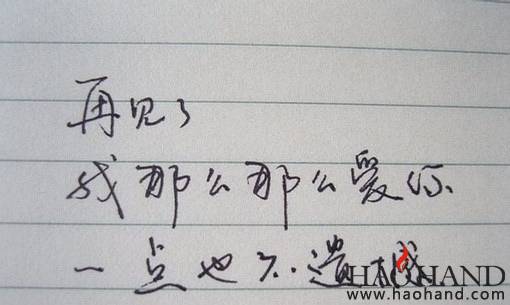 再见了
我那么那么爱你
一点也不遗憾
HAOHAND
www.haohand.com